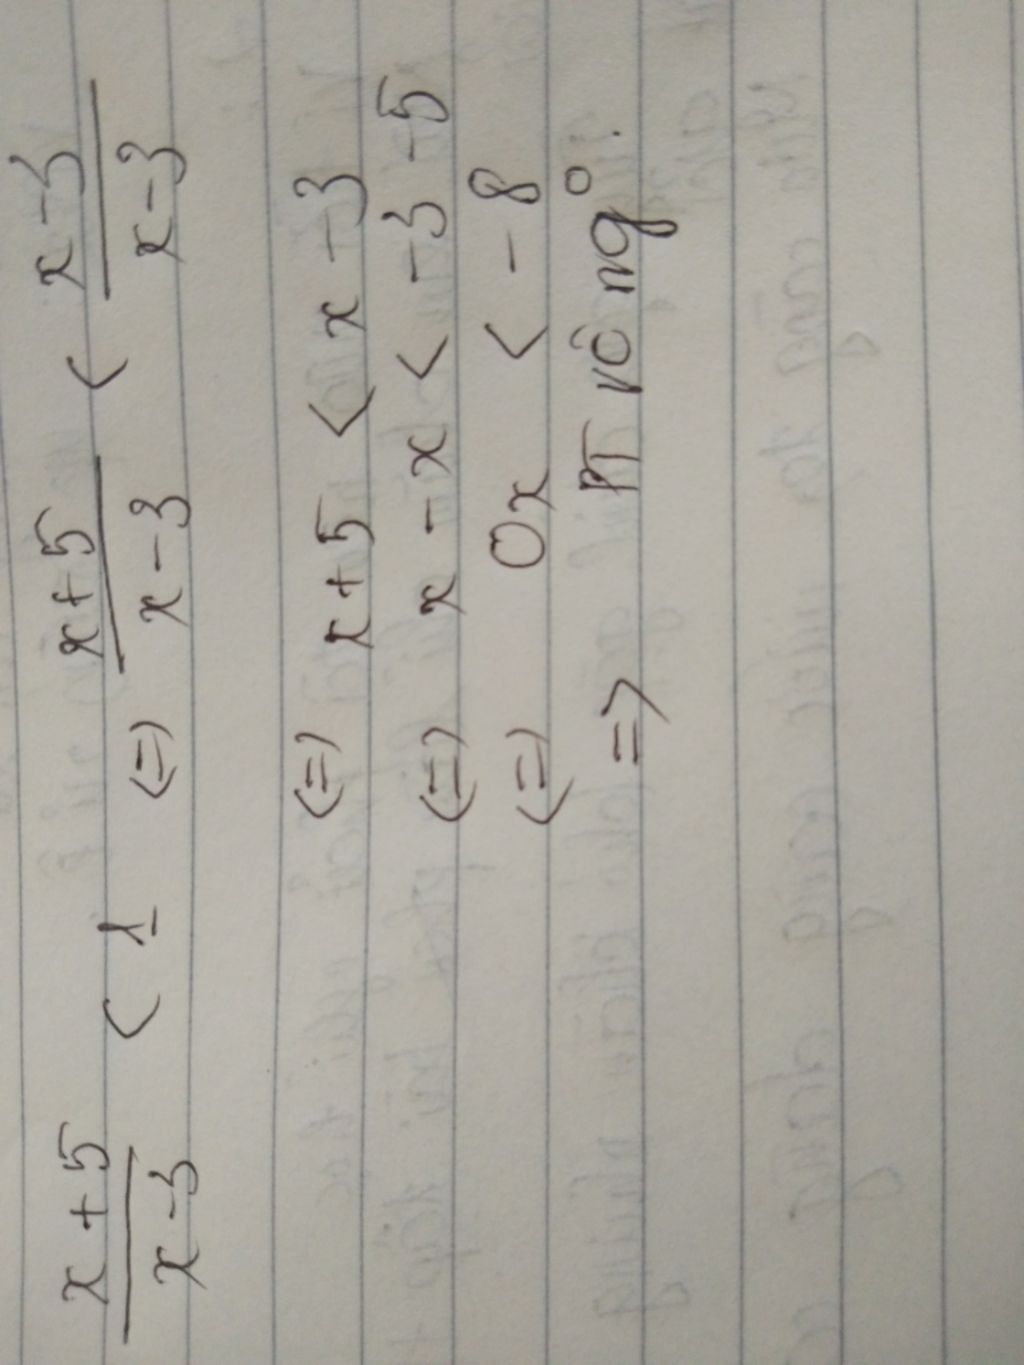 x + 5 / x - 3 < 1 (=) x + 5 / x - 3 < x - 3 / x - 3
(=) x + 5 < x - 3
(=) x - x < - 3 - 5
(=) 0x < - 8
=> PT vô ng⁰.